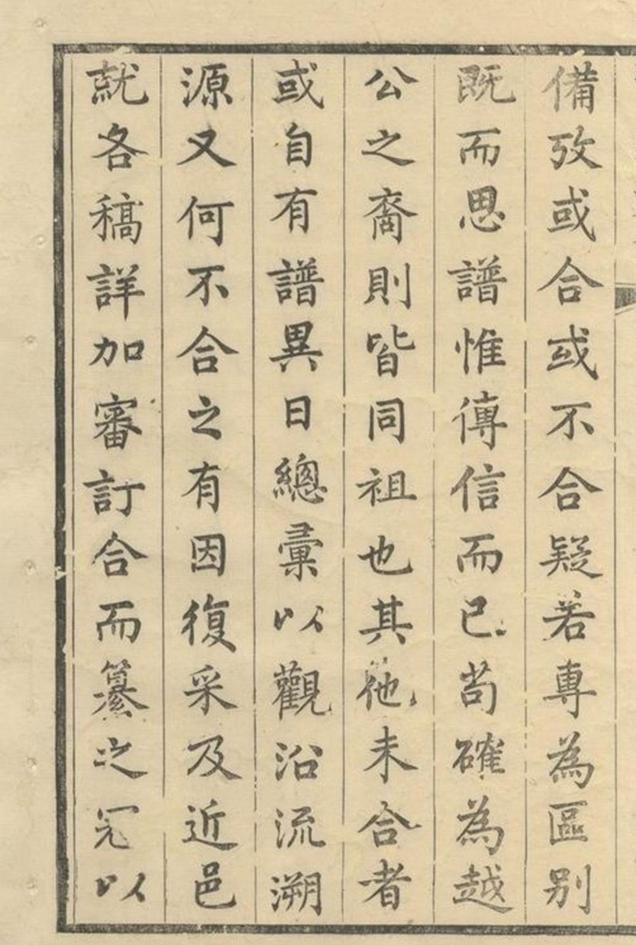 備攷或合或不合疑若專為區別
既而思譜惟傳信而已苟確為越
公之裔則皆同祖也其他未合者
或自有譜異日總彙以觀沿流溯
源又何不合之有因復采及近邑
就各稿詳加審訂合而纂之冠以